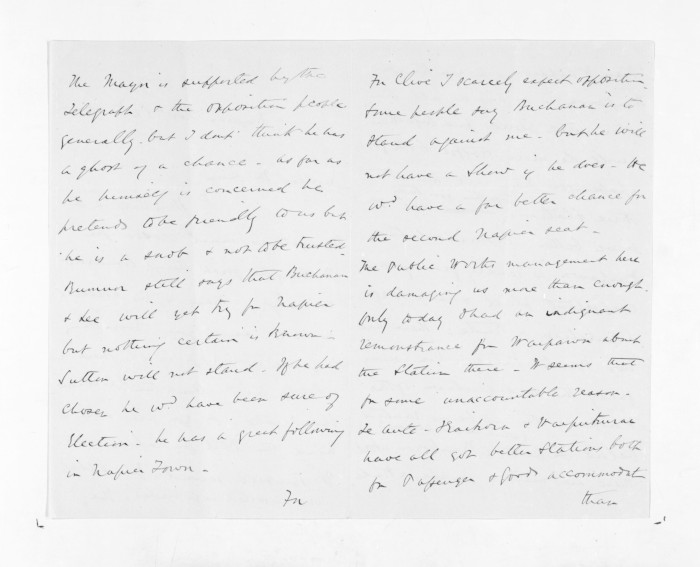 The Mayor is supported by the
Telegraph & the opposition people
generally. but I dont think he has
a ghost of a chance - as far as
he himself is concerned he
pretends to be friendly to us but
he is a snob & not to be trusted.
Rumour still says that Buchanan
& Lee will yet try for Napier
but nothing certain is known -
Sutton will not stand. If he had
chosen he wd. have been sure of
Election - he has a great following
in Napier Town -
For
For Clive I scarcely expect opposition.
Some people say Buchanan is to
stand against me - but he will
not have a show if he does - He
wd. have a far better chance for
the second Napier seat -
The Public Works management here
is damaging us more than enough.
Only today I had an indignant
remonstrance from Waipawa about
the Station there - It seems that
for some unaccountable reason -
Te Aute - Kaikora & Waipukurau
have all got better Stations both
for Passenger & Goods accommodatn
than